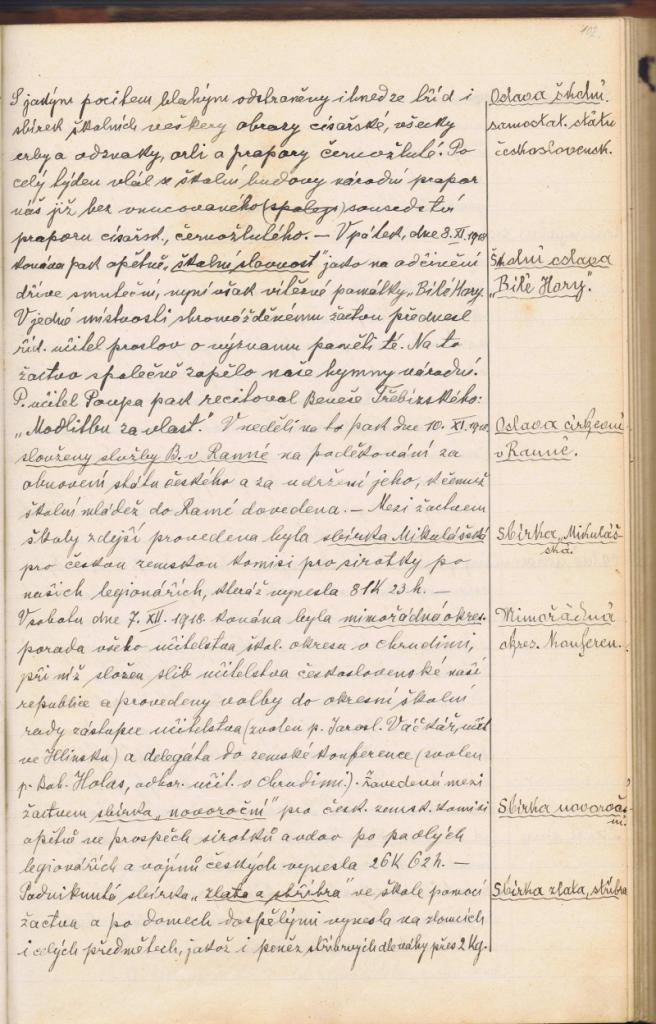 102.
S jakým pocitem blahým odstraněny ihned ze tříd i
sbírek školních veškery obrazy císařské, všecky
erby a odznaky, orli a prapory černožluté. Po
celý týden vlál se školní budovy národní prapor
náš již bez vnucovaného sousedství
praporu císařsk., černožlutého. — V pátek, dne 8. XI. 1918
konána pak opětně „školní slavnost" jako na odčinění
dříve smuteční, nyní však vítězné památky „Bílé Hory.
V jedné místnosti shromážděnému žactvu přednesl
říd. učitel proslov o významu paměti té. Na to
žactvo společně zapělo naše hymny národní.
P. učitel Poupa pak recitoval Beneše Třebízského:
„Modlitbu za vlast." V neděli na to pak dne 10. XI. 1918
slouženy služby B. v Ranné na poděkování za
obnovení státu českého a za udržení jeho, k čemuž
školní mládež do Ranné dovedena. — Mezi žactvem
školy zdejší provedena byla sbírka Mikulášská
pro českou zemskou komisi pro sirotky po
našich legionářích, kteráž vynesla 81K 23h. —
V sobotu dne 7. XII. 1918 konána byla mimořádná okres.
porada všeho učitelstva škol. okresu v Chrudimi,
při níž složen slib učitelstva československé naší
republice a provedeny volby do okresní školní
rady zástupce učitelstva (zvolen p. Jarosl. Váčkář, učit.
ve Hlinsku) a delegáta do zemské konference (zvolen
p. Boh. Holas, odbor. učit. v Chrudimi.). Zavedená mezi
žactvem sbírka „novoroční" pro česk. zemsk. komisi
opětně ve prospěch sirotků a vdov po padlých
legionářích a vojínů českých vynesla 26K 62h. —
Podniknutá sbírka „zlata a stříbra" ve škole pomocí
žactva a po domech dospělými vynesla na zlomcích
i celých předmětech, jakož i peněz stříbrných dle váhy přes 2 Kg.
Oslava školní.
samostat. státu
československ.
Školní oslava
„Bílé Hory."
Oslava církevní
v Ranné.
Sbírka „Mikuláš-
ská.
Mimořádná
okres. konferen.
Sbírka novoroč-
ní.
Sbírka zlata, stříbra